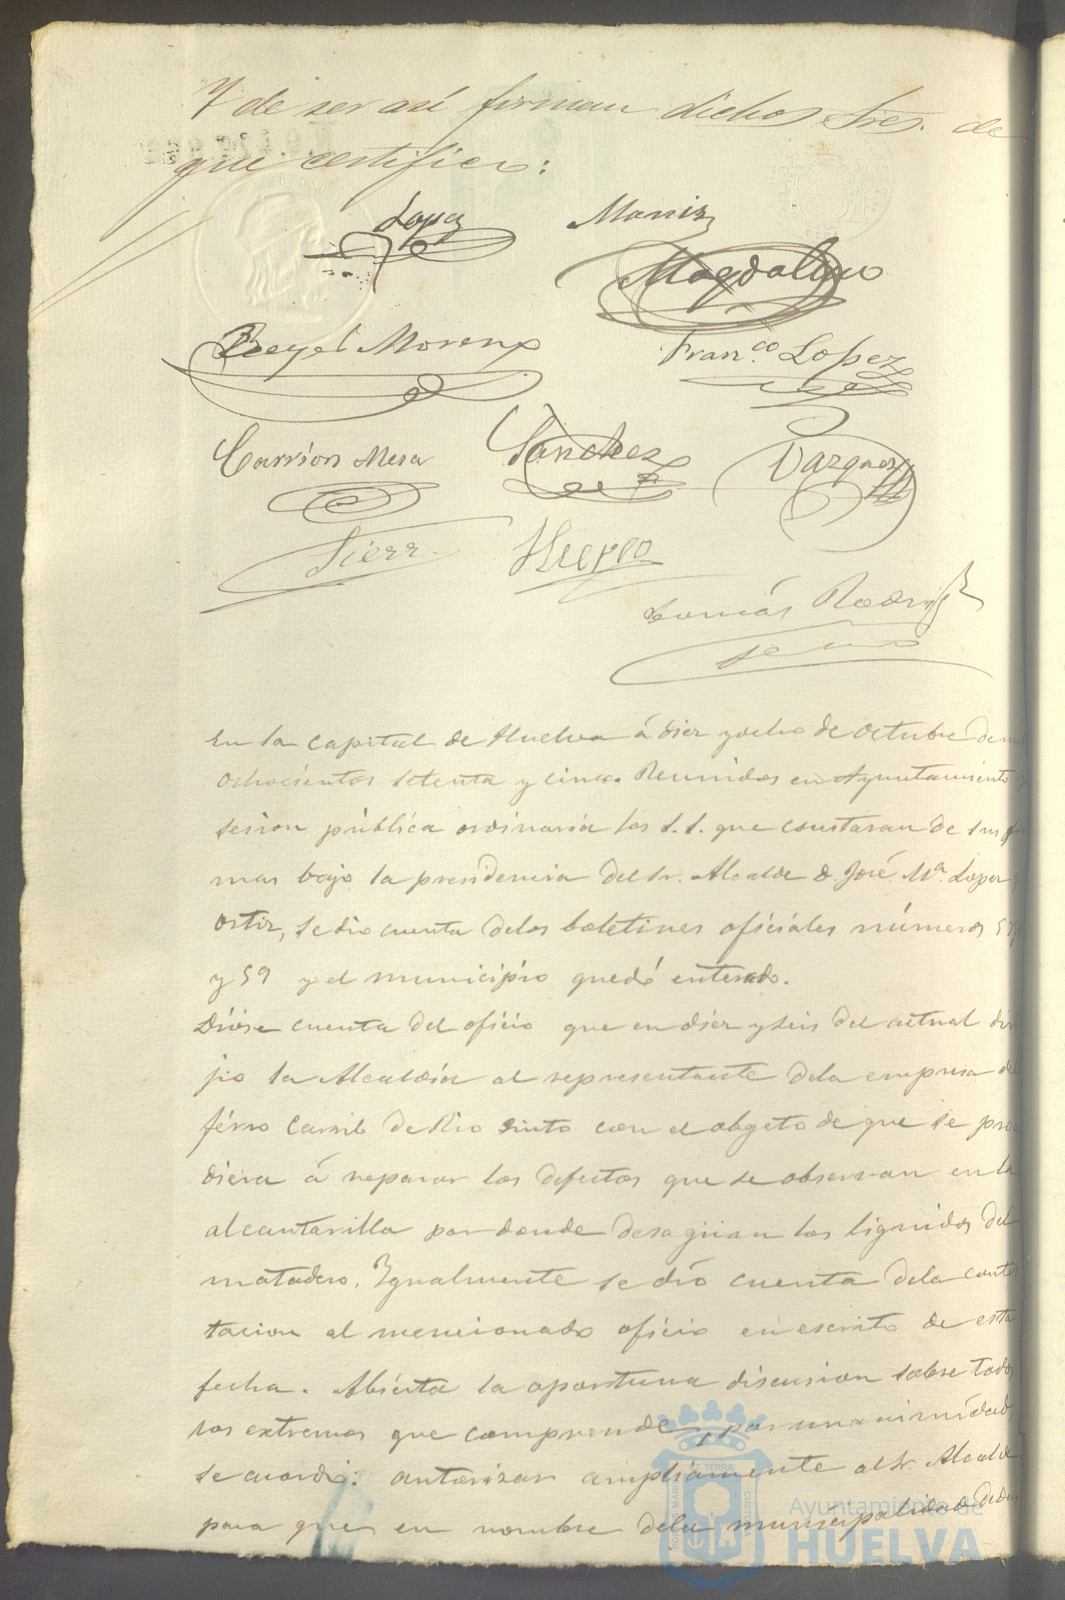 Y de ser así firman dichos Sres. de
que certifico:
Lopez
Magdaleno
Moreno
Franco. Lopez
Carrion Mesa
Sanchez
Vazquez
Sierr
Tomás Rodrig
En la capital de Huelva á diez y ocho de octubre de mil
ochocientos setenta y cinco. Reunidos en Ayuntamiento
sesion pública ordinaria los S.S. que constaran de sus
mas bajo la presidencia del Sr. Alcalde D. José Ma. Lopez
Ortiz, se dio cuenta delos boletines oficiales números 57,
y 59 y el municipio quedó enterado.
Dióse cuenta del oficio que en diez y seis del actual diri
jio la Alcaldía al representante dela empresa del
férro carril de Rio Tinto con el obgeto de que se proce
diera á reparar los defectos que se observan en la
alcantarilla por donde desagüan los liquidos del
matadero. Igualmente se dió cuenta dela contes
tacion al mencionado oficio en escrito de esta
fecha. Abierta la oportuna discusion sobre todos
los extremos que comprende, por unanimidad,
se acordó: autorizar ampliamente al Sr. Alcalde
para que en nombre dela municipalidad
Ayuntamiento de
HUELVA